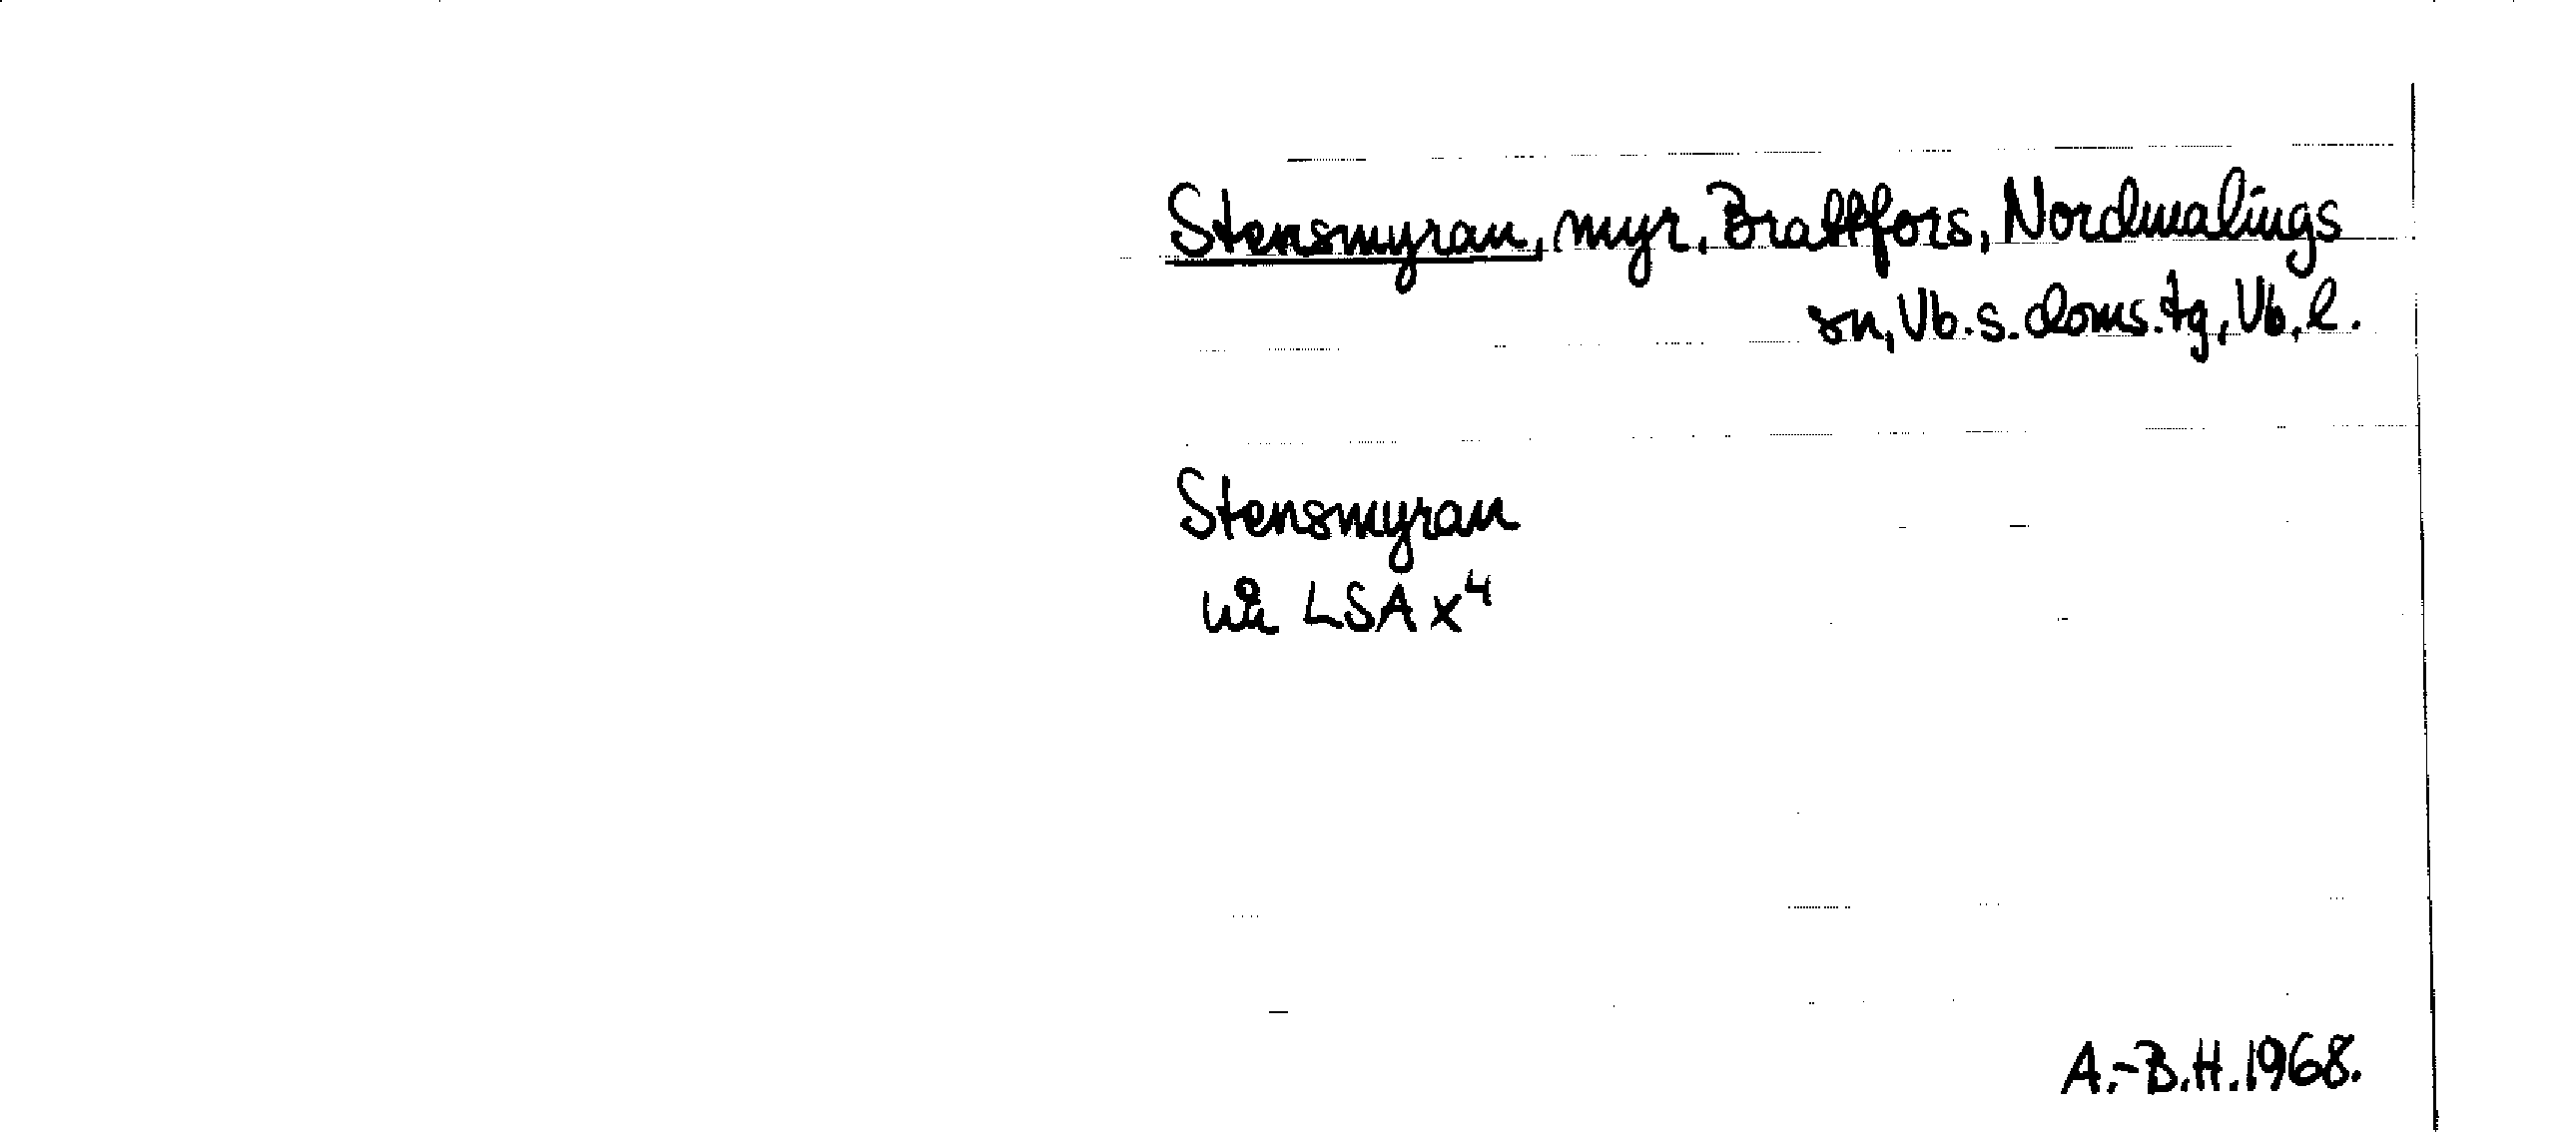 Stensmyran, myr, Brattfors, Nordmalings
sn, Vb.s.doms.tg, Vb.l.
Stensmyran
LSA x⁴
A.-B.H.1968.